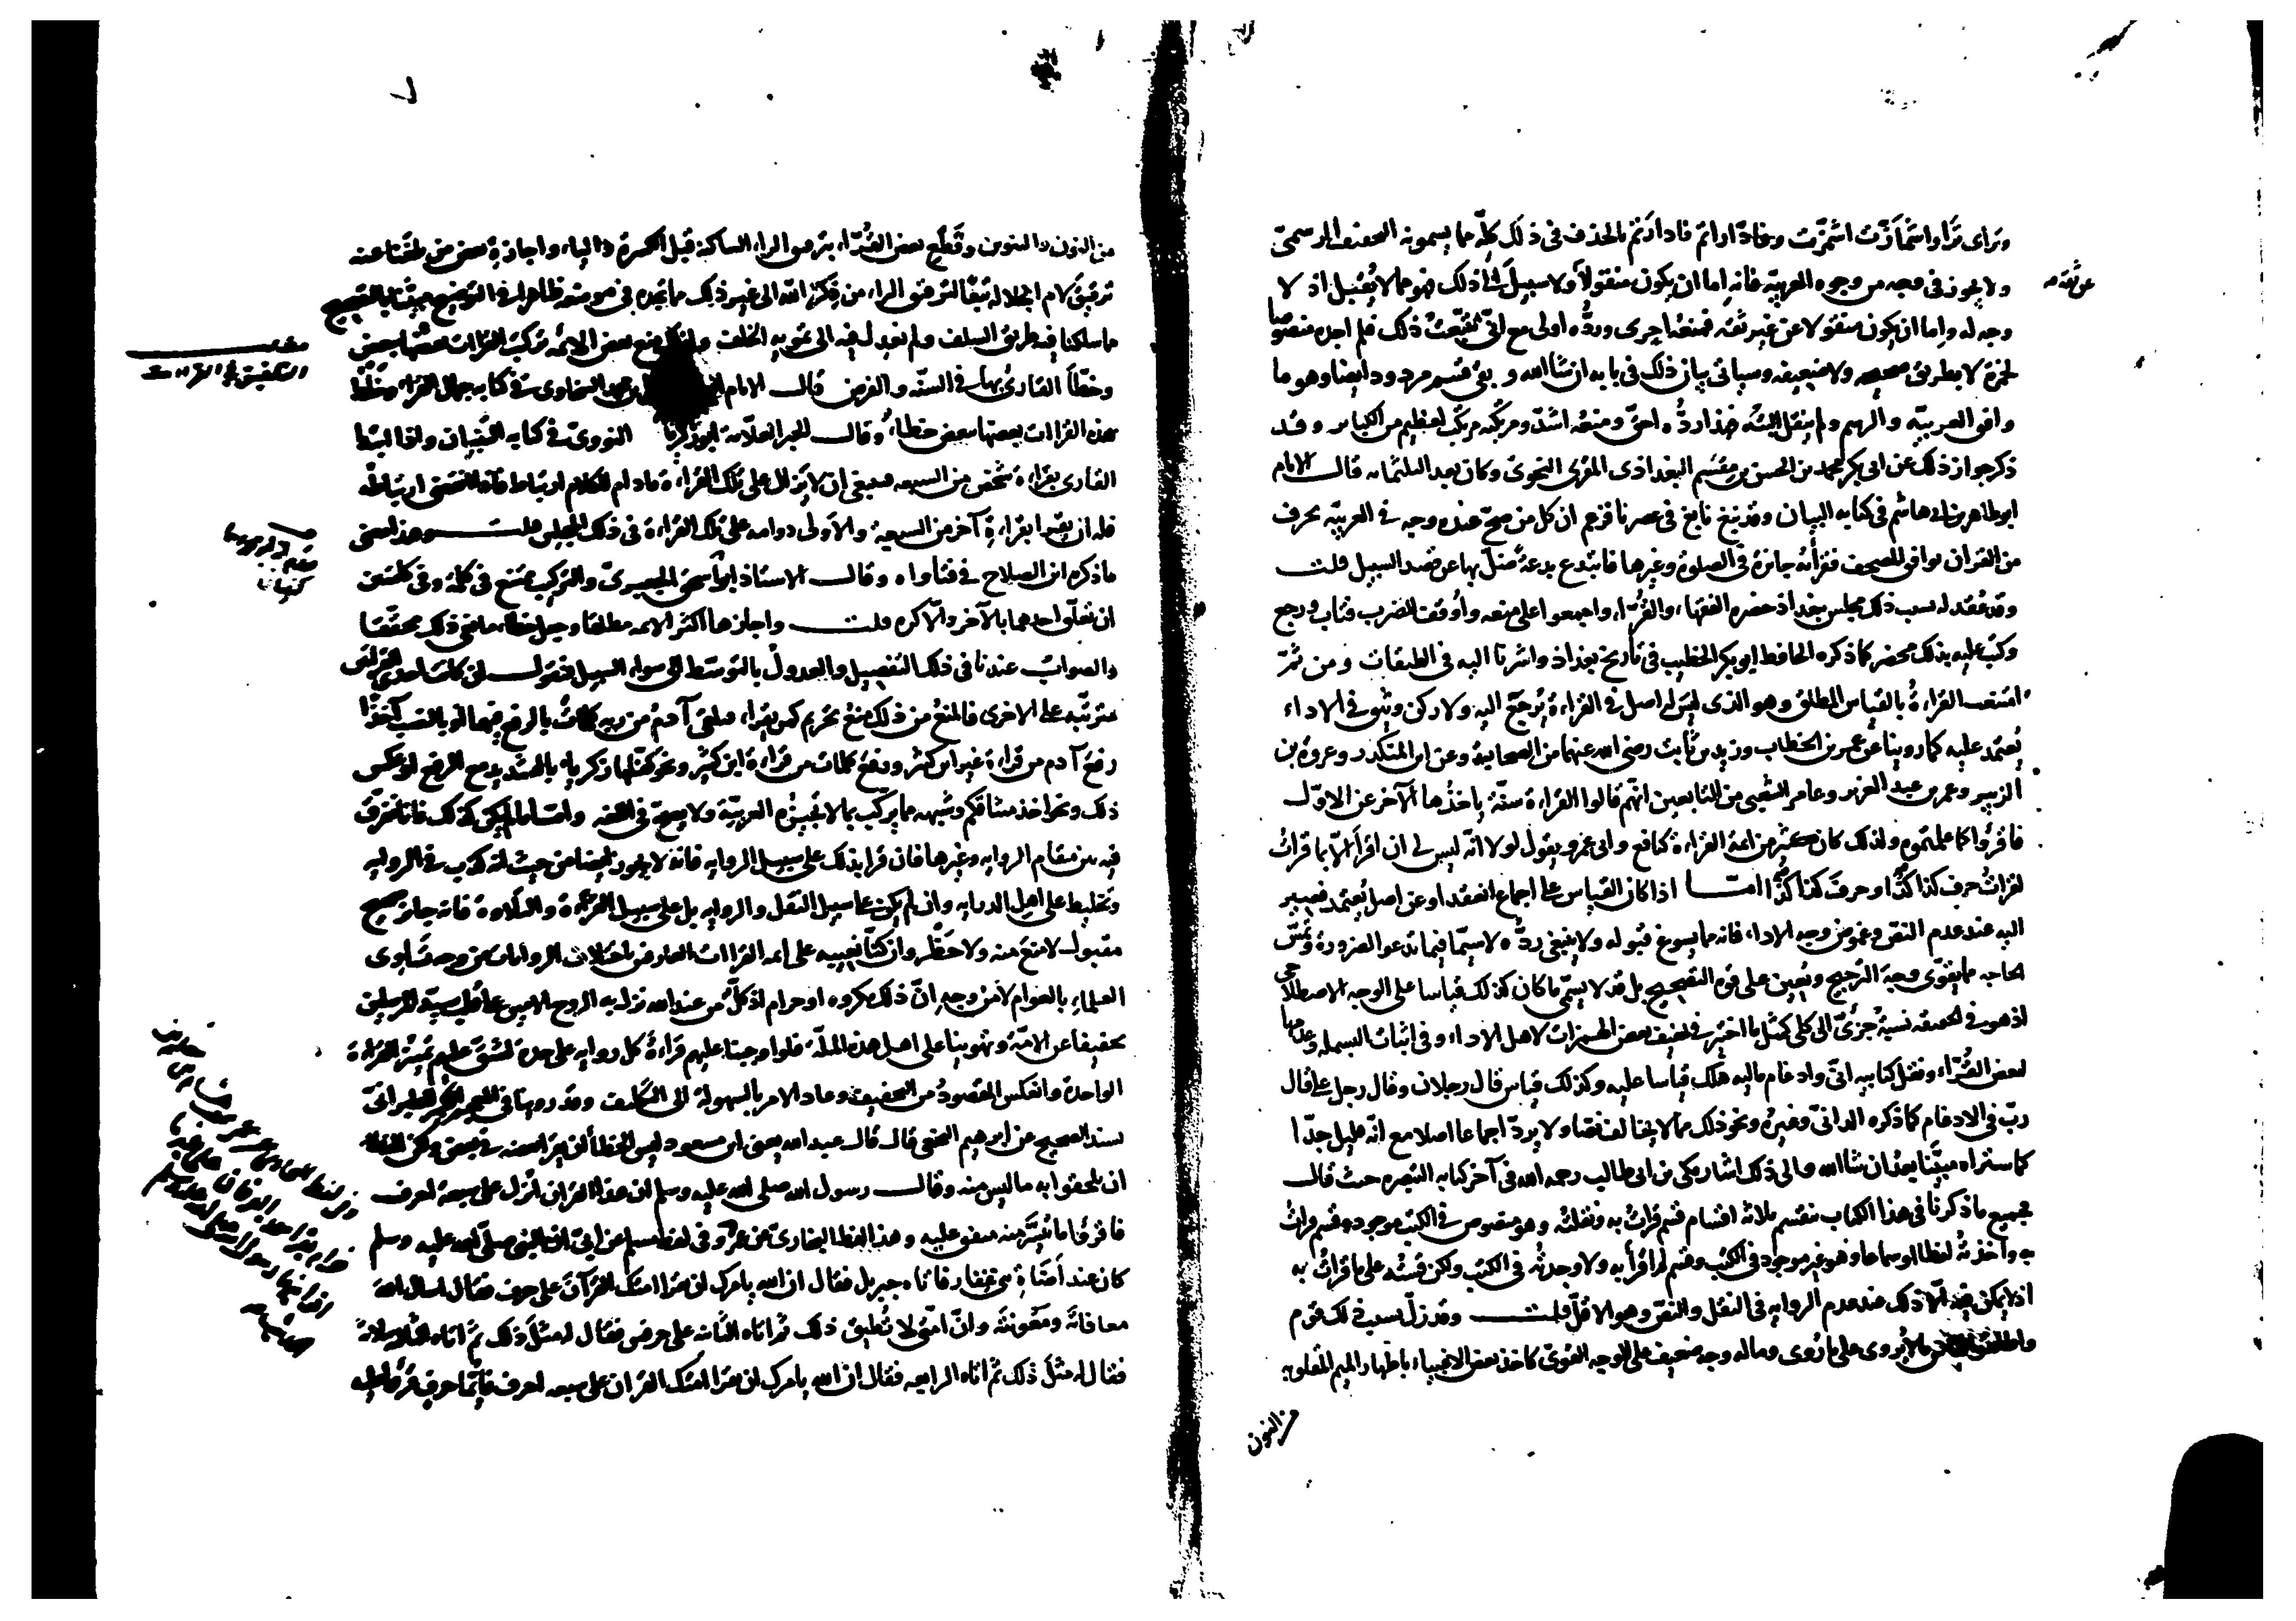 وتراى تَرَا واشمأزّت اشمزّت وفادّاراتم فادارتم بالحذف في ذلك كلّه مما يسمونه التخفيف الرسمىّ
ولا يجوز في وجه من وجوه العربيّة فانه اما ان يكون منقولاً ولا سبيل الى ذلك فهو مما لا يُقبل اذ لا
وجه له واما ان يكون منقولا عن غير ثقه فمنعه احرى وردّه اولى مع انّي تتبّعتُ ذلك فلم اجده منصوصا
لحمزة لا بطريق صحيحه ولا ضعيفه وسياتي بيان ذلك في بابه ان شا الله وبقي قسم مردود ايضا وهو ما
وافق العربيّه والرسم ولم ينقل البتّه فهذا ردّه احقّ ومنعه اشدّ ومرتكبه مرتكب لعظيم من الكبائر وقد
ذكر جواز ذلك عن ابي بكر محمد بن الحسن بن مِقسَم البغداذى المقرى النحوىّ وكان بعد الثلثمائه قال الامام
ابو طاهر بن ابي هاشم في كتابه البيان وقد نبغ نابغ في عصرنا فزعم ان كل من صحّ عنده وجه في العربيّه بحرف
من القران يوافق المصحف فقرأته جائزة في الصلوة وغيرها فابتدع بدعةً ضلّ بها عن قصد السبيل قلت
وقد عُقد له بسبب ذلك مجلس ببغداذ حضره الفقهاء والقُرّاء واجمعوا على منعه وأُوقف للضرب فتاب ورجع
وكتب عليه بذلك محضر كما ذكره الحافظ ابو بكر الخطيب في تاريخ بغداذ واشرنا اليه في الطبقات ومن ثمّ
امتنعت القراءةُ بالقياس المطلق وهو الذى ليس له اصل في القراءة يُرجَع اليه ولا ركن وثيق في الاداء
يُعتمد عليه كما روينا عن عمر بن الخطاب وزيد بن ثابت رضي الله عنهما من الصحابة وعن ابن المنكدر وعروة بن
الزبير وعمر بن عبد العزيز وعامر الشعبي من التابعين انّهم قالوا القراءة سنّةٌ ياخذُها الآخر عن الاوّل
فاقرؤا كما علمتموه ولذلك كان كثير من ائمة القراءة كنافع وابى عمرو يقول لولا انّه ليس لي ان اقرأ الّا بما قراتُ
لقراتُ حرف كذا كذا وحرف كذا كذا امّا اذا كان القياس على اجماع انعقد او عن اصل يُعتمد فيصير
اليه عند عدم النصّ وغموض وجه الاداء فانه مما يسوغ قبوله ولا ينبغي ردّه لا سيّما فيما تدعو الضرورة وتمسّ
الحاجه مما يقوّى وجه الترجيح ويُعين على قوة التصحيح بل قد لا يسمّى ما كان كذلك قياسا على الوجه الاصطلاحى
اذ هو في الحقيقه نسبةُ جزئىّ الى كلى كمثل ما اختير في تخفيف بعض الهمزات لاهل الاداء وفي اثبات البسمله وعدمها
لبعض القُرّاء ونقل كتابيه انّي وادغام ماليه هلك قياسا عليه وكذلك قياس قال رجلان وقال رجل على قال
ربّ في الادغام كما ذكره الدانىّ وغيره ونحو ذلك مما لا يخالف نصّا ولا يردّ اجماعا اصلا مع انّه قليل جدّا
كما ستراه مبيّنا بعد ان شا الله والى ذلك اشار مكى بن ابي طالب رحمه الله في آخر كتابه التبصره حيث قال
فجميع ما ذكرنا في هذا الكتاب ينقسم ثلاثه اقسام قسم قراتُ به ونقلته وهو منصوص في الكتب موجود وقسم قراتُ
به واخذتُه لفظا او سماعا وهو غير موجود في الكتب وقسم لم اقرأ به ولا وجدتُه في الكتب ولكن قستُه على ما قراتُ به
اذ لا يمكن فيه الّا ذلك عند عدم الروايه في النقل والنصّ وهو الاقلّ قلت وقد زلّ بسبب ذلك قوم
واطلقوا قياس ما لا يُروى على ما رُوى وما له وجه ضعيف على الوجه القوىّ كاخذ بعض الاغبياء باظهار الميم المقلوبه
من النون
عن ثقه
من النون والتنوين وقَطْعِ بعض القُرّاء بترقيق الراء الساكنة قبل الكسرة والياء واجازةِ بعض من بلغنا عنه
ترقيق لام الجلاله تبعًا لترقيق الراء من ذِكرُ الله الى غير ذلك مما تجده في موضعه ظاهرا في التوضيح مبيّنا بالتصحيح
ما سلكنا فيه طريق السلف ولم نعدل فيه الى تمويه الخلف ولذلك منع بعض الائمّه تركيب القراات بعضها ببعض
وخطّأ القارئ بها في السنّه والفرض قال الامام بن محمد السخاوى في كتابه جمال القراء وخَلْطُ
هذه القراات بعضها ببعض خطأٌ وقال الحبر العلّامة ابو زكريا النووىّ في كتابه التبيان واذا ابتدا
القارى بقراءة شخص من السبعه فينبغي ان لا يزال على تلك القراءة ما دام للكلام ارتباط فاذا انقضى ارتباطُه
فله ان يقرا بقراءةِ آخر من السبعةِ والاولى دوامه على تلك القراءة في ذلك المجلس قلت وهذا معنى
ما ذكره ابن الصلاح في فتاواه وقال الاستاذ ابو اسحق الجعبرىّ والتركيب ممتنع في كلمة وفي كلمتين
ان تعلّق احدهما بالآخر والّا كره قلت واجازها اكثر الائمه مطلقا وجعل خطأ مانعي ذلك محققا
والصواب عندنا في ذلك التفصيل والعدول بالتوسّط الى سواء السبيل فنقول ان كانت احدى القراتين
مترتّبه على الاخرى فالمنعُ من ذلك منعُ تحريم كمن يقراء فتلقى آدمُ من ربه كلماتٌ بالرفع فيهما او بالنصب آخذًا
رفعَ آدم من قراءة غير ابن كثير ورفعَ كلمات من قراءة ابن كثير ونحو كفّلها زكرياء بالتشديد مع الرفع او عكس
ذلك ونحو اخذ ميثاقكم وشبهه مما يركّب بما لا تجيزه العربيّة ولا يصحّ في اللغه وامّا ما لم يكن كذلك فانّا نفرّق
فيه بين مقام الروايه وغيرها فان قرا بذلك على سبيل الروايه فانه لا يجوز ايضا من حيث انه كذب في الروايه
وتخليط على اهل الدرايه وان لم يكن على سبيل النقل والروايه بل على سبيل القراءة والتلاوة فانه جائز صحيح
مقبول لا منعَ منه ولا حَظْر وان كنّا نعيبه على ائمه القراات العارفين باختلاف الروايات من وجه تساوى
العلماء بالعوام لا من وجهِ انّ ذلك مكروه او حرام اذ كلٌّ من عند الله نزل به الروح الامين على قلب سيّد المرسلين
تخفيفا عن الامّة وتهوينا على اهل هذه الملّة فلو اوجبنا عليهم قراءةَ كل روايه على حدة لشقّ عليهم تمييز القراءة
الواحدة وانعكس المقصودُ من التخفيف وعاد الامر بالسهولة الى التكليف وقد روينا في المعجم الكبير للطبرانىّ
بسند الصحيح عن ابرهيم النخعى قال قال عبد الله يعنى ابن مسعود ليس الخطأ ان يقرا بعضه في بعض ولكن الخطأ
ان يلحقوا به ما ليس منه وقال رسول الله صلى الله عليه وسلم ان هذا القران انزل على سبعة احرف
فاقرؤا ما تيسَّر منه متفق عليه وهذا لفظ البخارىّ عن عمر وفي لفظ مسلم عن ابىّ ان النبى صلّى الله عليه وسلم
كان عند أضَاةِ بنى غِفار فاتاه جبريل فقال ان الله يامرك ان تقرا امتك القرآن على حرف فقال اسال الله
معافاته ومعونته وانّ امتى لا تُطيق ذلك ثم اتاه الثانيه على حرفين فقال له مثلَ ذلك ثم اتاه الثالثه بثلاثة
فقال له مثلَ ذلك ثم اتاه الرابعه فقال ان الله يامرك ان تقرا امتك القران على سبعه احرف فايّما حرف قرؤا عليه